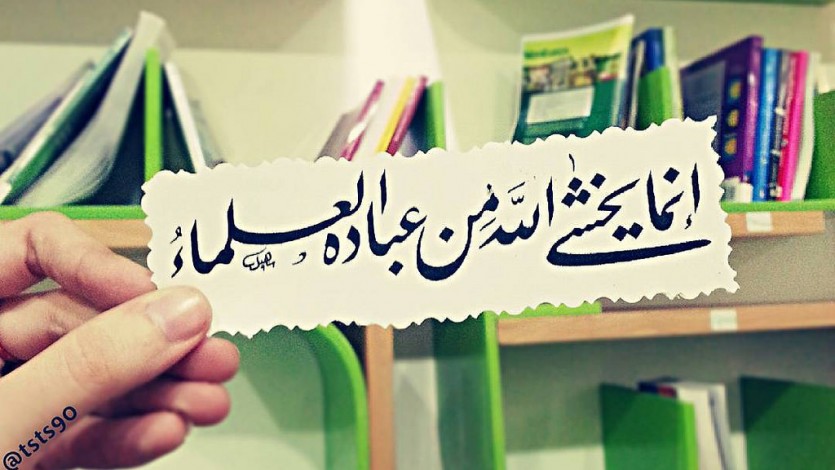 إنما يخشى اللَّهَ مِن عباده العلماءُ
@tsts90